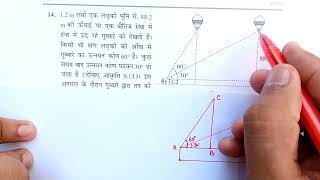 14. 1.2 m लंबी एक लड़की भूमि से 88.2
m की ऊँचाई पर एक क्षैतिज रेखा में
हवा में उड़ रहे गुब्बारे को देखती है।
किसी भी क्षण लड़की की आँख से
गुब्बारे का उन्नयन कोण 60° है। कुछ
समय बाद उन्नयन कोण घटकर 30° हो
जाता है (देखिए आकृति 9.13)। इस
अंतराल के दौरान गुब्बारे द्वारा तय की
60°
30°
88
C
60°
30°
A
B